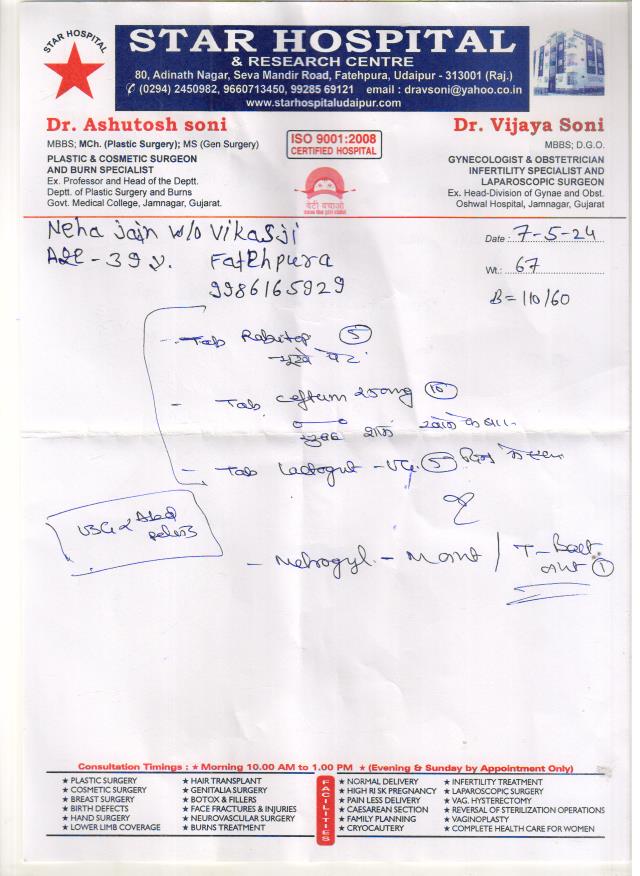 STAR HOSPITAL
STAR HOSPITAL
& RESEARCH CENTRE
80, Adinath Nagar, Seva Mandir Road, Fatehpura, Udaipur - 313001 (Raj.)
✆ (0294) 2450982, 9660713450, 99285 69121 email : dravsoni@yahoo.co.in
www.starhospitaludaipur.com
Dr. Ashutosh soni
MBBS; MCh. (Plastic Surgery); MS (Gen Surgery)
PLASTIC & COSMETIC SURGEON
AND BURN SPECIALIST
Ex. Professor and Head of the Deptt.
Deptt. of Plastic Surgery and Burns
Govt. Medical College, Jamnagar, Gujarat.
ISO 9001:2008
CERTIFIED HOSPITAL
बेटी बचाओ
Dr. Vijaya Soni
MBBS; D.G.O.
GYNECOLOGIST & OBSTETRICIAN
INFERTILITY SPECIALIST AND
LAPAROSCOPIC SURGEON
Ex. Head-Division of Gynae and Obst.
Oshwal Hospital, Jamnagar, Gujarat
Neha jain w/o Vikasji
Age - 39 y. Fatehpura
9986165929
Date : 7-5-24
Wt.: 67
B = 110/60
- Tab Rabitop 5
- Tab. Ceftum 250mg 10
- Tab Lactogut - VG. 5
USG
- Metrogyl. - M / T-
1
Consultation Timings : ★ Morning 10.00 AM to 1.00 PM ★ (Evening & Sunday by Appointment Only)
★ PLASTIC SURGERY
★ COSMETIC SURGERY
★ BREAST SURGERY
★ BIRTH DEFECTS
★ HAND SURGERY
★ LOWER LIMB COVERAGE
★ HAIR TRANSPLANT
★ GENITALIA SURGERY
★ BOTOX & FILLERS
★ FACE FRACTURES & INJURIES
★ NEUROVASCULAR SURGERY
★ BURNS TREATMENT
FACILITIES
★ NORMAL DELIVERY
★ HIGH RI SK PREGNANCY
★ PAIN LESS DELIVERY
★ CAESAREAN SECTION
★ FAMILY PLANNING
★ CRYOCAUTERY
★ INFERTILITY TREATMENT
★ LAPAROSCOPIC SURGERY
★ VAG. HYSTERECTOMY
★ REVERSAL OF STERILIZATION OPERATIONS
★ VAGINOPLASTY
★ COMPLETE HEALTH CARE FOR WOMEN